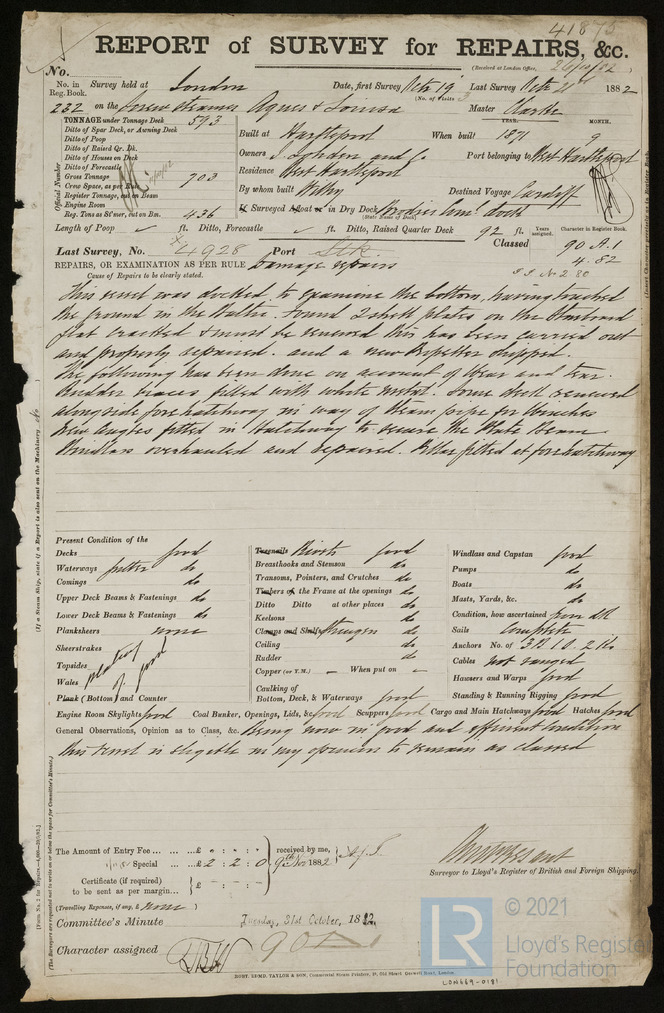 41875
REPORT of SURVEY for REPAIRS, &c.
(Received at London Office, 26/10/82)
No.
No. in Reg. Book. Survey held at London Date, first Survey Octr 19 Last Survey Octr 21 1882
(No. of Visits 3)
232 on the Screw Steamer Agnes & Louisa Master Clarke
TONNAGE under Tonnage Deck 593
Ditto of Spar Deck, or Awning Deck
Ditto of Poop
Ditto of Raised Qr. Dk.
Ditto of Houses on Deck
Ditto of Forecastle
Gross Tonnage 703
Crew Space, as per Rule
Register Tonnage, cut on Beam
Engine Room
Reg. Tons as St'mer, cut on Bm. 436
Official Number
Built at Hartlepool When built YEAR. 1871 MONTH. 9
Owners Port belonging to West Hartlepool
Residence West Hartlepool
By whom built Withy Destined Voyage Cardiff
If Surveyed Afloat or in Dry Dock
(State Name of Dock)
Length of Poop ft. Ditto, Forecastle ft. Ditto, Raised Quarter Deck 92 ft.
Years assigned. Character in Register Book.
Last Survey, No. 4928 Port Classed 90 A.1
4.82
REPAIRS, OR EXAMINATION AS PER RULE Damage repairs
Cause of Repairs to be clearly stated.
This vessel was docked to examine the bottom, having touched
the ground in the Baltic. Found 2 shell plates on the Starboard
flat cracked & must be renewed this has been carried out
and properly repaired. and a new Propeller shipped.
The following has been done on account of Wear and tear.
Rudder braces filled with white metal. Some deck renewed
alongside fore hatchway in way of steam pipe for winches
New angles fitted in hatchway to secure the Plate Beam
Windlass overhauled and repaired. Pillar fitted at fore hatchway
Present Condition of the
Decks good
Waterways gutter do
Comings do
Upper Deck Beams & Fastenings do
Lower Deck Beams & Fastenings do
Planksheers none
Sheerstrakes
Topsides
Wales
plating good
Plank (Bottom) and Counter
Treenails Rivets good
Breasthooks and Stemson do
Transoms, Pointers, and Crutches do
Timbers of the Frame at the openings do
Ditto Ditto at other places do
Keelsons do
Clamps and Shelfs Stringers do
Ceiling do
Rudder do
Copper (or Y.M.) – When put on –
Caulking of
Bottom, Deck, & Waterways good
Windlass and Capstan good
Pumps do
Boats do
Masts, Yards, &c. do
Condition, how ascertained from dk
Sails Complete
Anchors No. of 3 B. 1 S. 2 Ks
Cables not ranged
Hawsers and Warps good
Standing & Running Rigging good
Engine Room Skylights good Coal Bunker, Openings, Lids, &c. good Scuppers good Cargo and Main Hatchways good Hatches good
General Observations, Opinion as to Class, &c. Being now in good and efficient condition
this vessel is eligible in my opinion to remain as classed
The Amount of Entry Fee ... ... ...£ " : " : "
Special ... ...£ 2 : 2 : 0
received by me,
9th Nov 1882
Certificate (if required)
to be sent as per margin... £ - : - : -
(Travelling Expenses, if any, £ none)
Surveyor to Lloyd's Register of British and Foreign Shipping.
Committee's Minute Tuesday, 31st October, 1882.
Character assigned 90 A 1
HOSE. EDMD. TAYLOR & SON, Commercial Steam Printers, London.
(If a Steam Ship, state if a Report is also sent on the Machinery
(The Surveyors are requested not to write on or below the space for Committee's Minute.)
LR
© 2021
Lloyd's Register
Foundation
LON669-0181